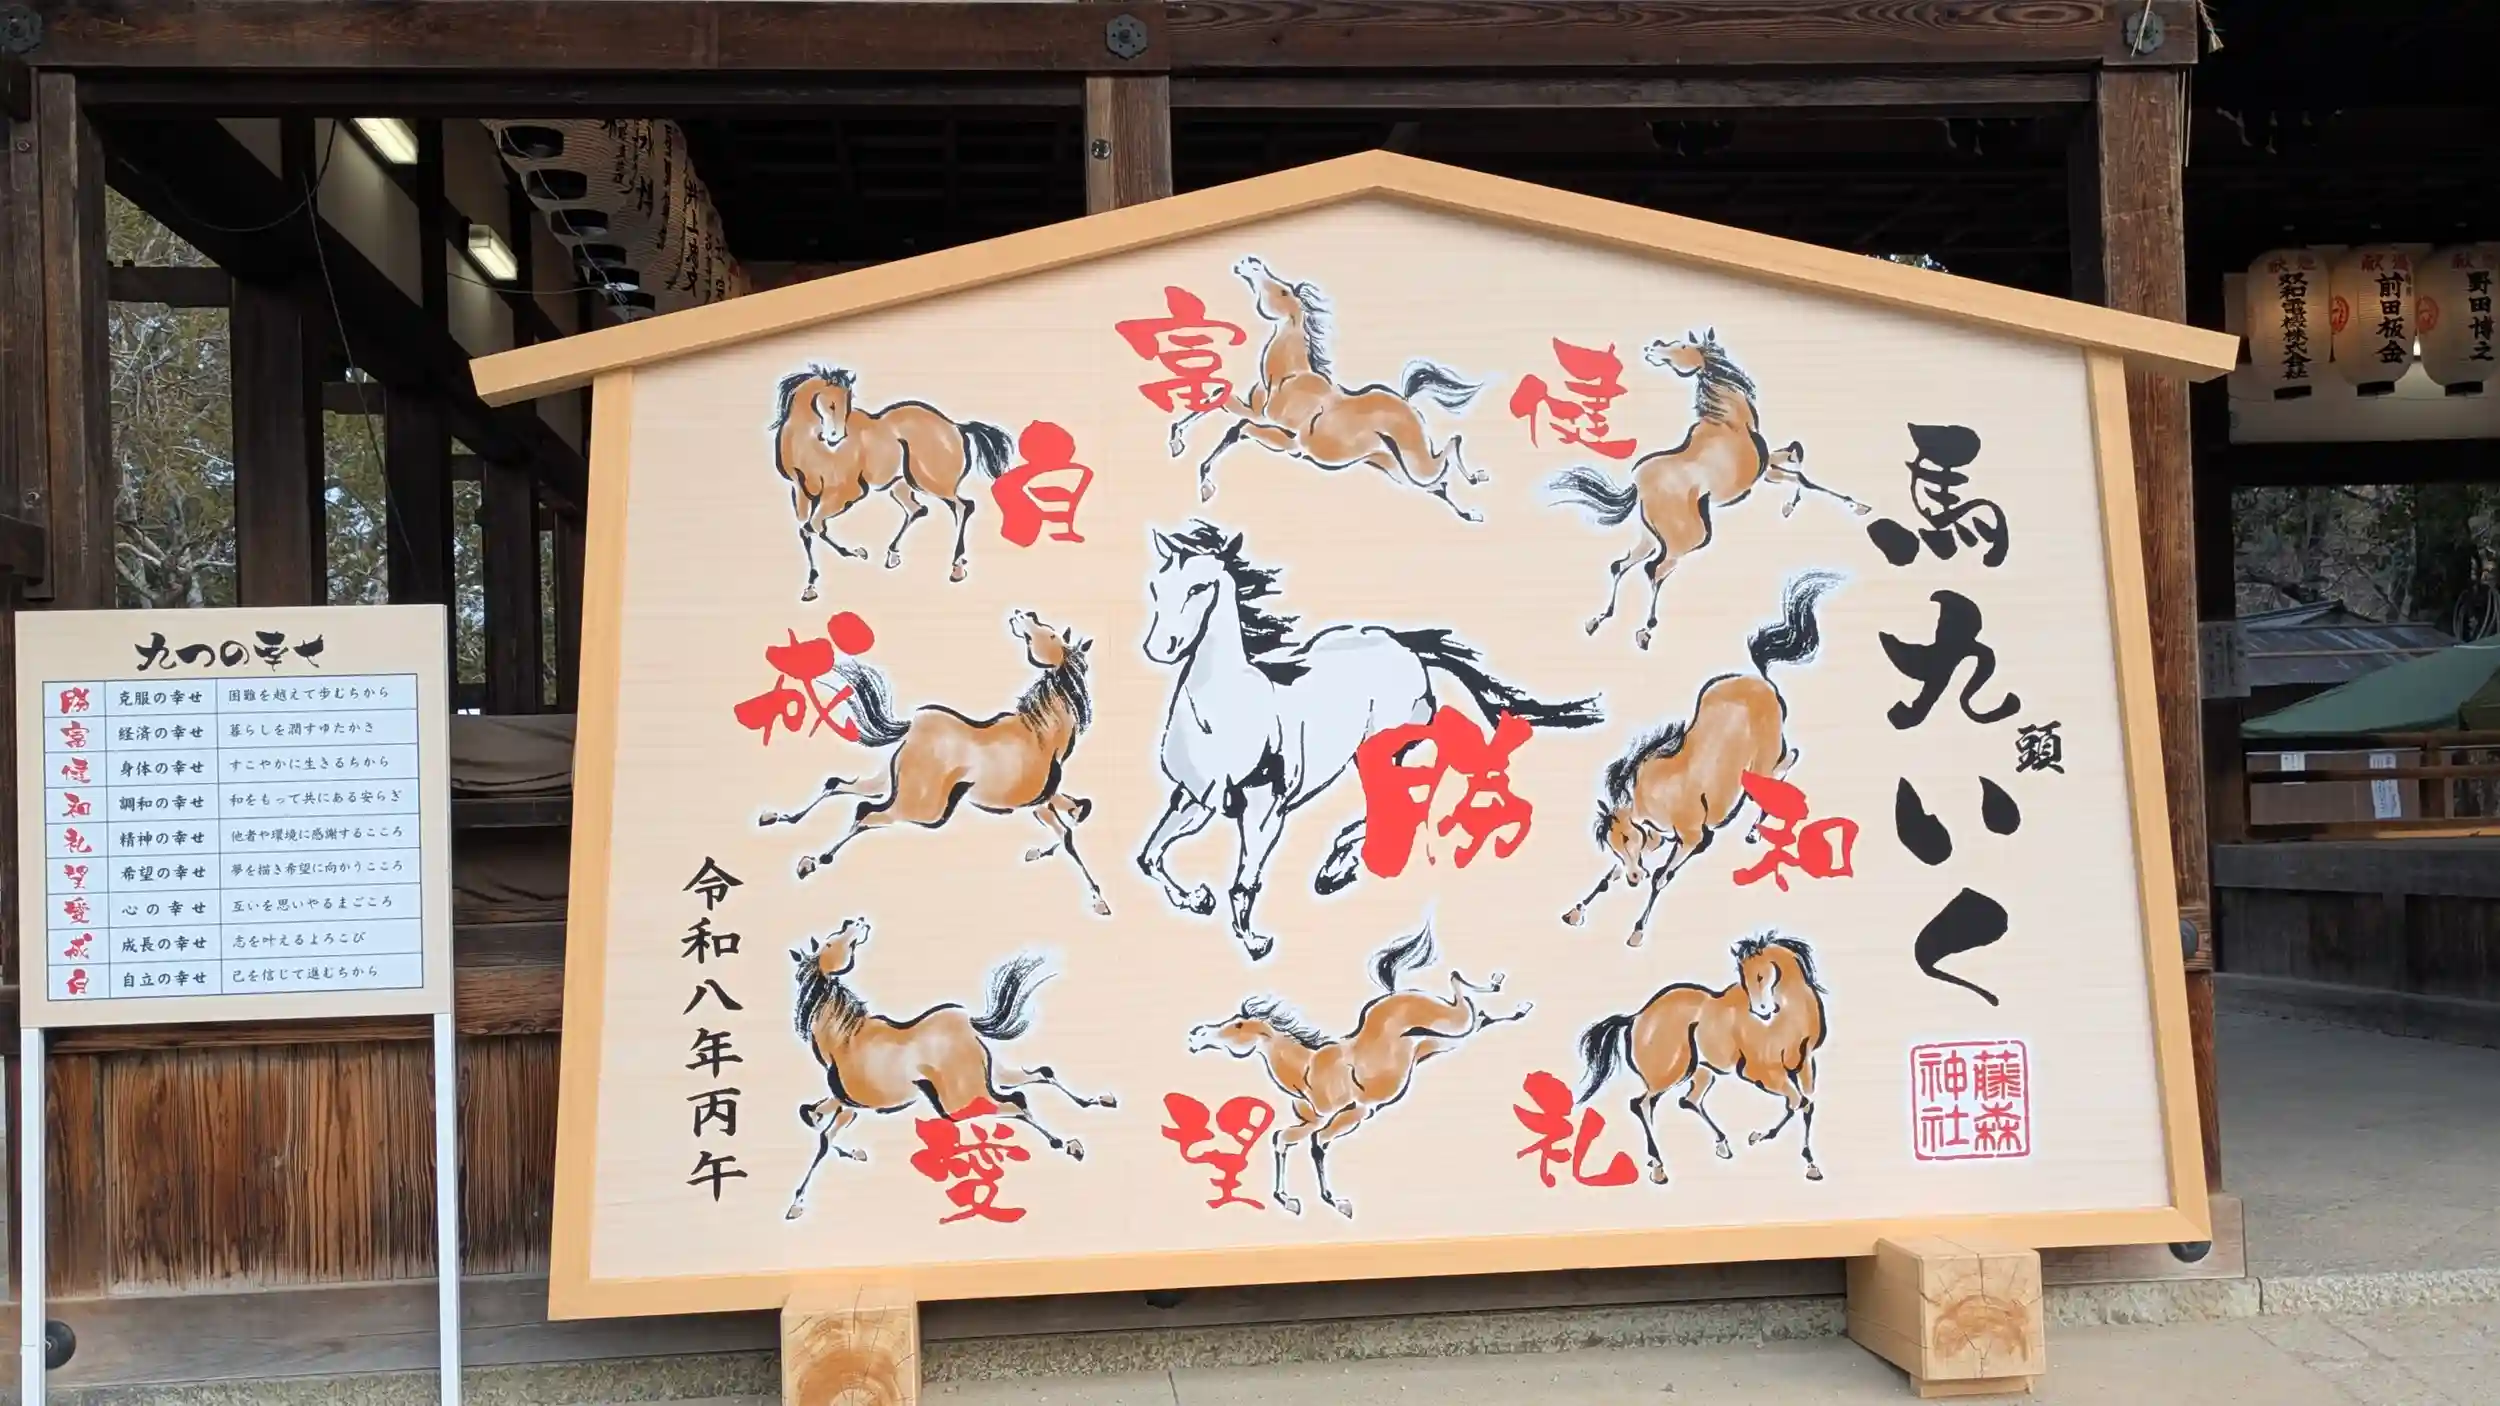 九つの幸せ
勝 克服の幸せ 困難を越えて歩むちから
富 経済の幸せ 暮らしを潤すゆたかさ
健 身体の幸せ すこやかに生きるちから
和 調和の幸せ 和をもって共にある安らぎ
礼 精神の幸せ 他者や環境に感謝するこころ
望 希望の幸せ 夢を描き希望に向かうこころ
愛 心の幸せ 互いを思いやるまごころ
成 成長の幸せ 志を叶えるよろこび
自 自立の幸せ 己を信じて進むちから
馬九頭いく
藤森
神社
健
富
自
和
勝
成
礼
望
愛
令和八年丙午
野田博之
献燈
前田板金
献燈